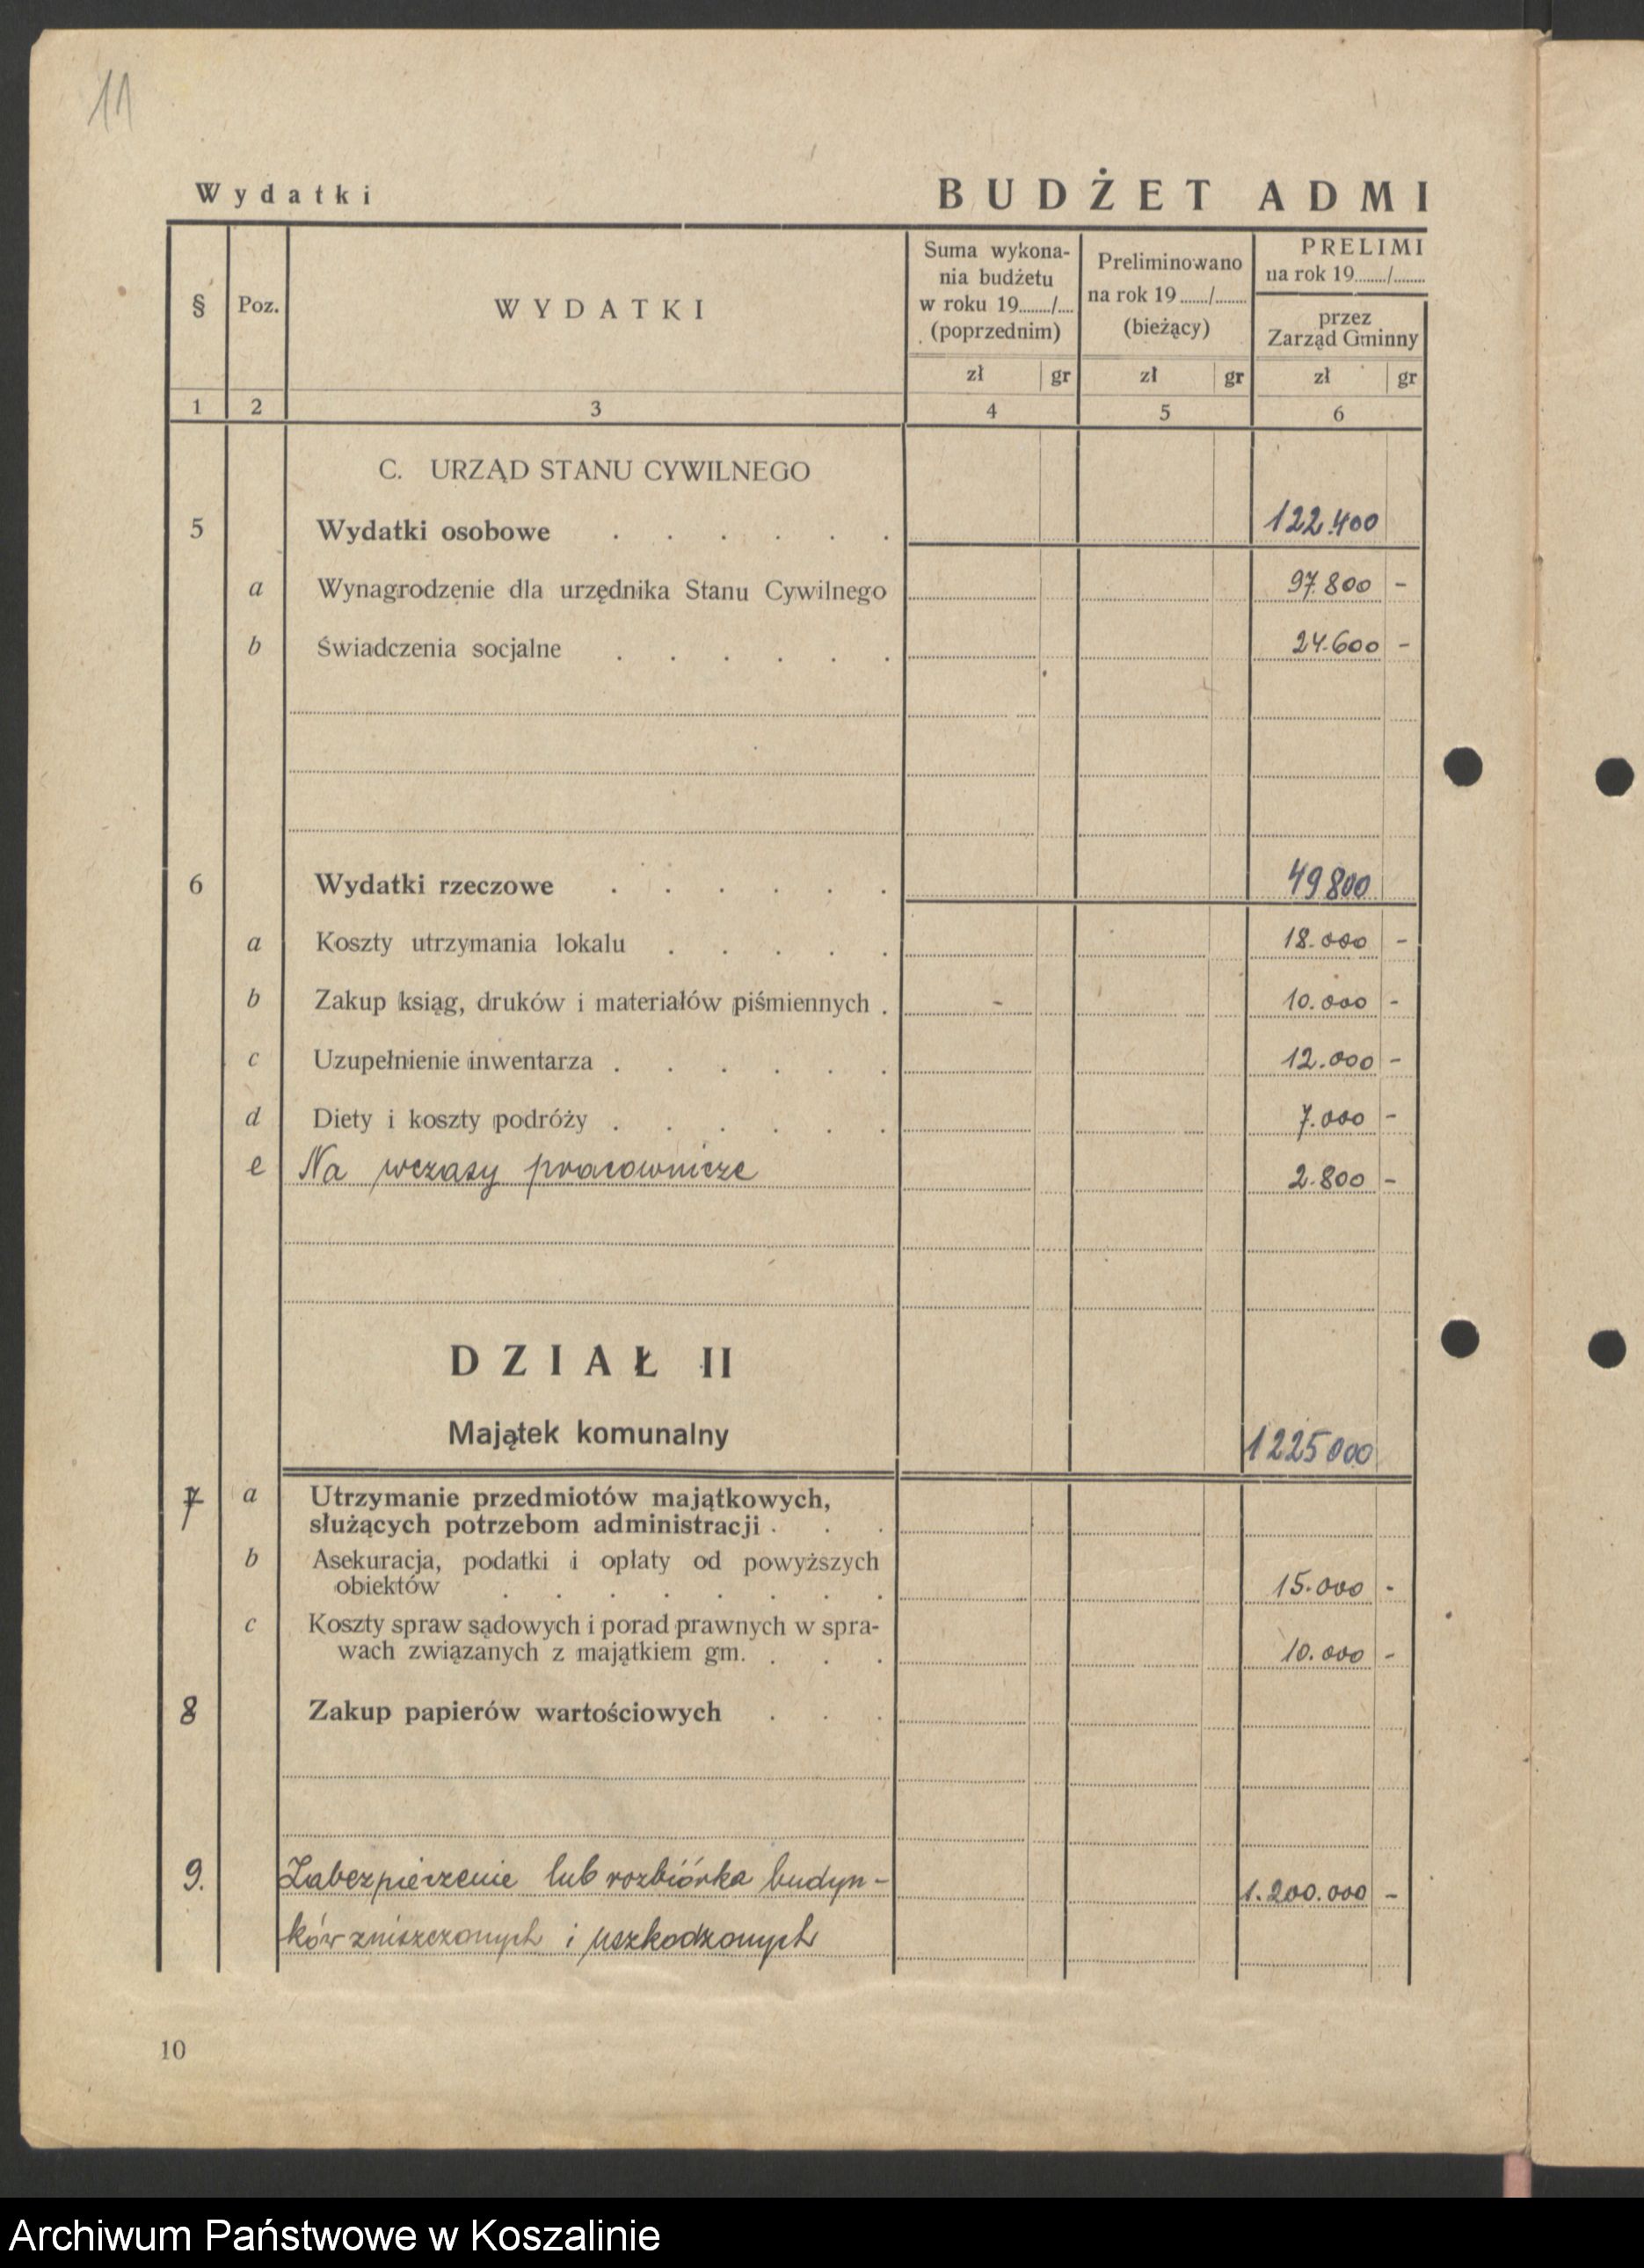 11
Wydatki BUDŻET ADMI
§ Poz. WYDATKI Suma wykona-
nia budżetu
w roku 19......../....
(poprzednim) Preliminowano
na rok 19......./........
(bieżący) PRELIMI
na rok 19......../........
przez
Zarząd Gminny
zł gr zł gr zł gr
1 2 3 4 5 6
C. URZĄD STANU CYWILNEGO
5 Wydatki osobowe . . . . . . 122.400
a Wynagrodzenie dla urzędnika Stanu Cywilnego 97.800 -
b Świadczenia socjalne . . . . . . 24.600 -
6 Wydatki rzeczowe . . . . . . 49800
a Koszty utrzymania lokalu . . . . . 18.000 -
b Zakup ksiąg, druków i materiałów piśmiennych . - 10.000 -
c Uzupełnienie inwentarza . . . . . . 12.000 -
d Diety i koszty podróży . . . . . . 7.000 -
e Na wczasy pracownicze 2.800 -
DZIAŁ II
Majątek komunalny 1225000
7 a Utrzymanie przedmiotów majątkowych,
służących potrzebom administracji . . .
b Asekuracja, podatki i opłaty od powyższych
obiektów . . . . . . . 15.000 -
c Koszty spraw sądowych i porad prawnych w spra-
wach związanych z majątkiem gm. . . . 10.000 -
8 Zakup papierów wartościowych . . .
9. Zabezpieczenie lub rozbiórka budyn- 1.200.000 -
ków zniszczonych i uszkodzonych
10
Archiwum Państwowe w Koszalinie